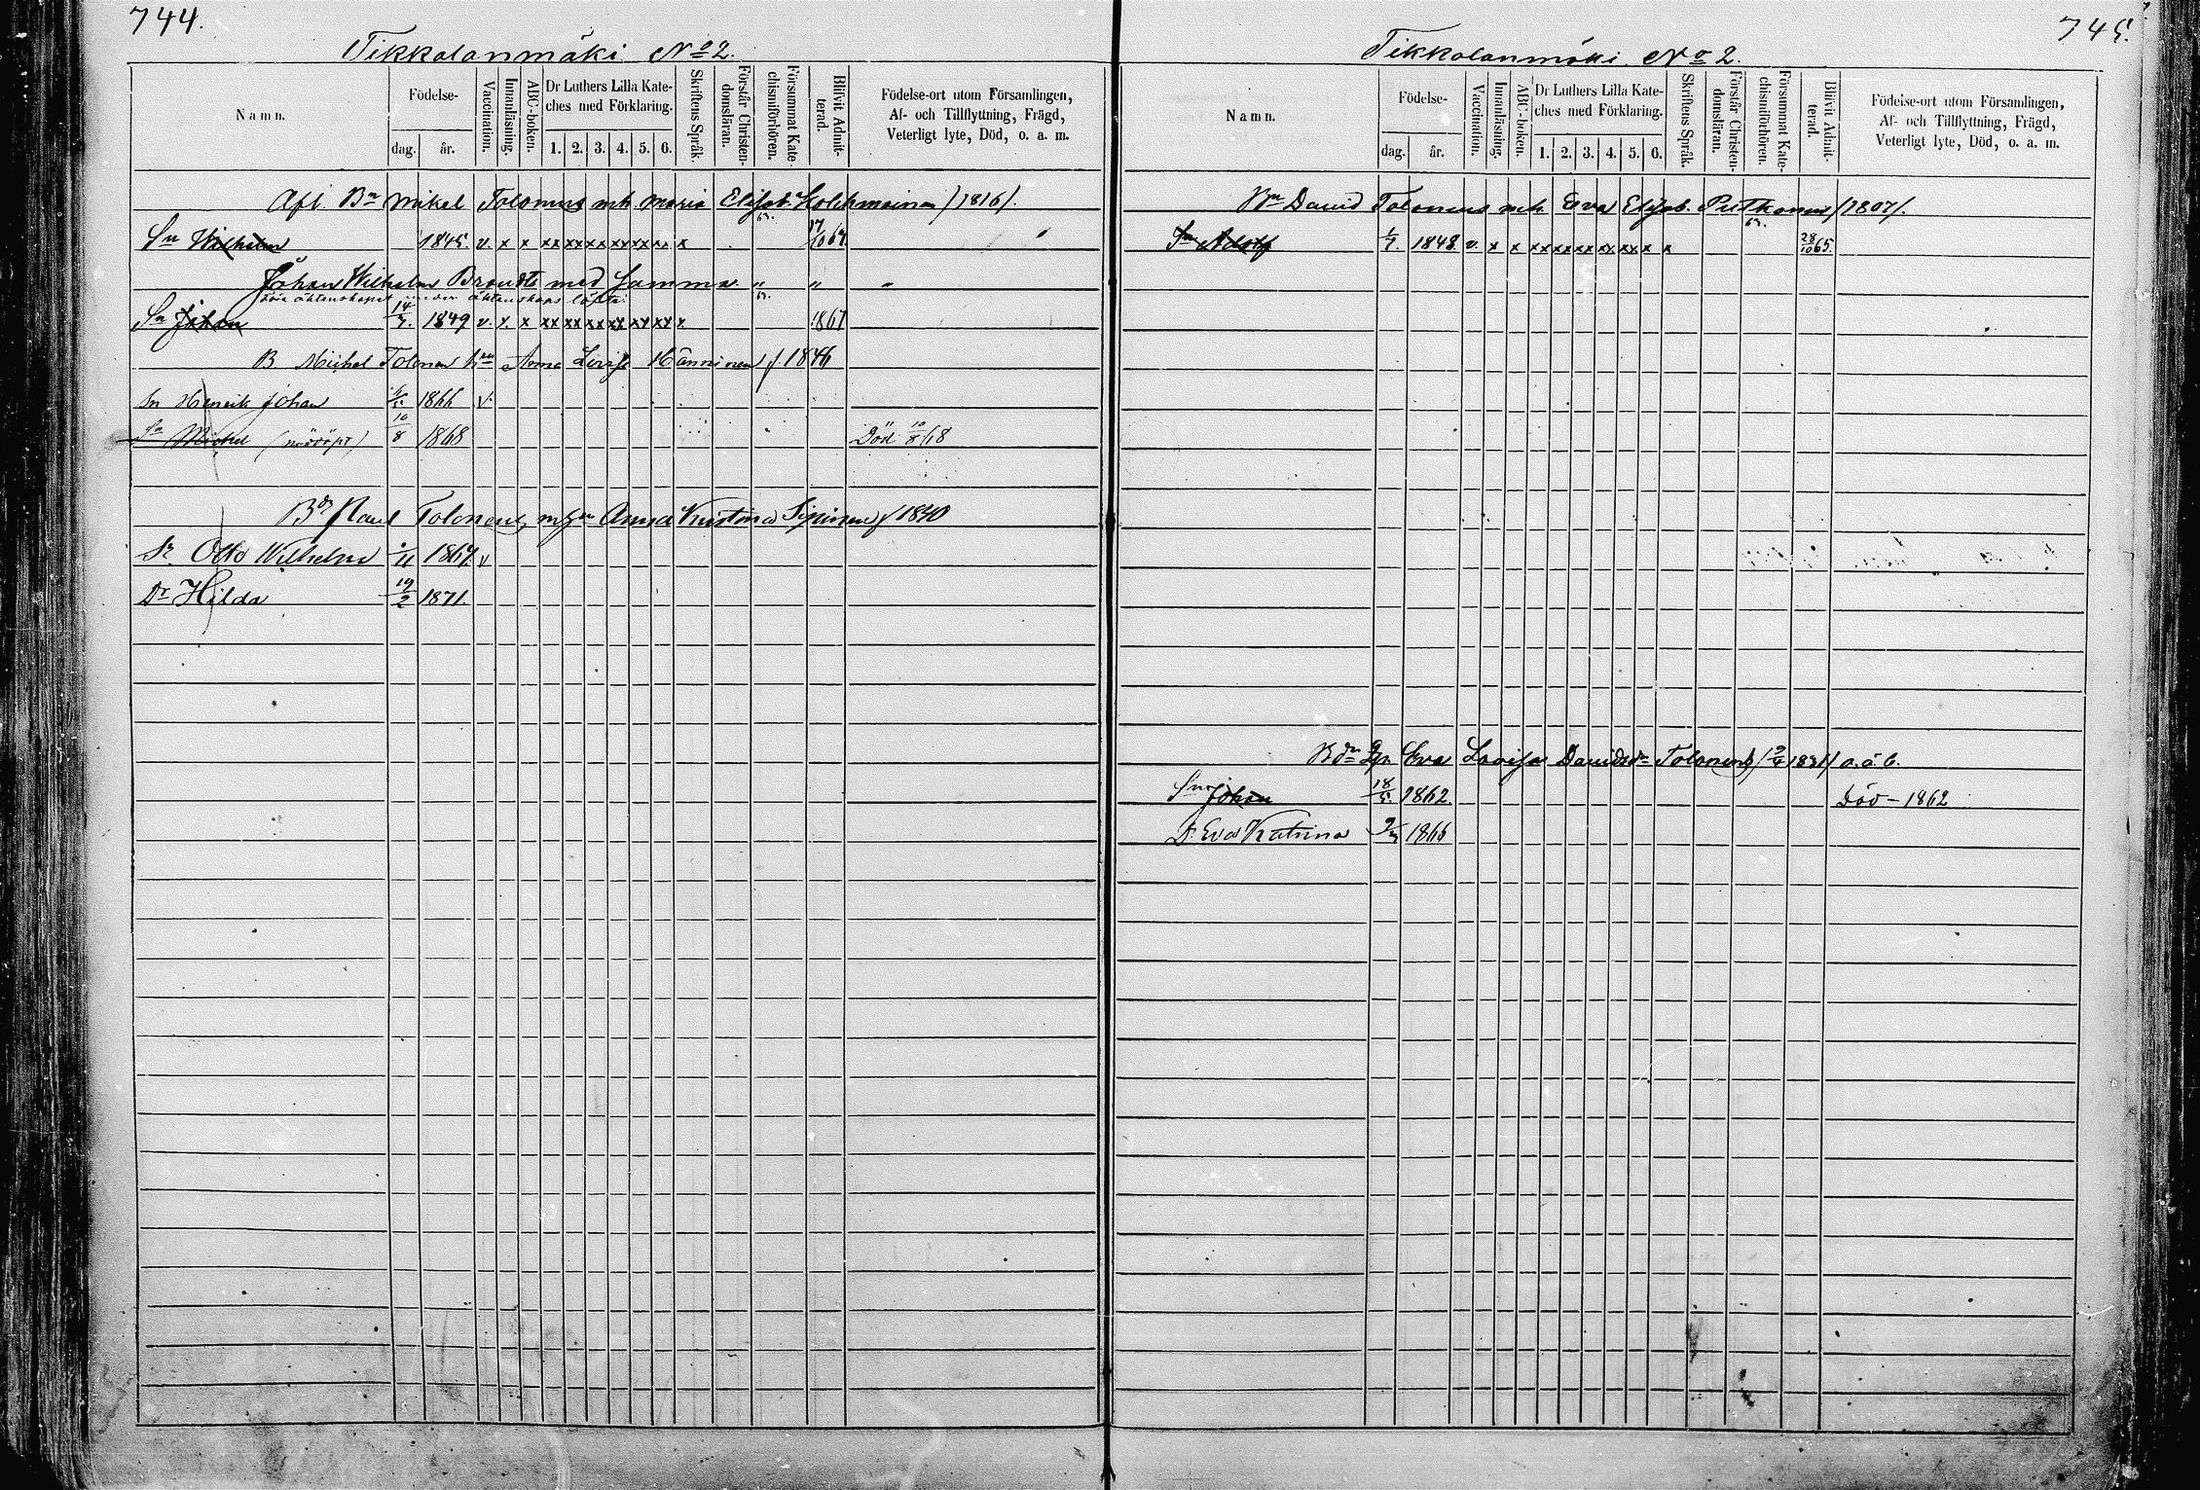 744.
Tikkalanmäki No 2.
Namn.
Födelse-
dag.
år.
Vaccination.
Innanläsning.
ABC-boken.
Dr Luthers Lilla Kate-
ches med Förklaring.
1. 2. 3. 4. 5. 6.
Skriftens Språk.
Förstår Christen-
domsläran.
Försummat Kate-
chismiförhören.
Blifvit Admit-
terad.
Födelse-ort utom Församlingen,
Af- och Tillflyttning, Frägd,
Veterligt lyte, Död, o. a. m.
Afl. Bn Mikel Tolonens mh. Maria Elisab. /1816/.
Sn Wilhelm 1845 v. x x xx xx xx xx xx xx x 17/10 64
Johan Wilhelm Brandt med samma " " "
Sn Johan 14/7. 1849 v. x. x xx xx xx xx xx xx x. 1867
B Michel Tolonen Anna Lovisa Hänninen f. 1846
Sn Henrik Johan 1866 v.
Sn Michel (nödöpt) 10/8 1868 Död 10/8 68
Bd Paul Tolonens Anna Kristina Sipinen f 1840
Sn Otto Wilhelm 1867. v
Dr Hilda 19/2 1871.
745.
Tikkalanmäki No 2.
Namn.
Födelse-
dag.
år.
Vaccination.
Innanläsning.
ABC-boken.
Dr Luthers Lilla Kate-
ches med Förklaring.
1. 2. 3. 4. 5. 6.
Skriftens Språk.
Förstår Christen-
domsläran.
Försummat Kate-
chismiförhören.
Blifvit Admit-
terad.
Födelse-ort utom Församlingen,
Af- och Tillflyttning, Frägd,
Veterligt lyte, Död, o. a. m.
Bn David Tolonens mh. Eva Elisab. /1807/.
Sn Adolf 1/7. 1848 v. x x xx xx xx xx xx x x 28/10 65.
Eva Lovisa Davidsdr Tolonens 1831/ o.ä.b.
Sn Johan 18/5. 1862 Död – 1862
D. Eva Katrina 1866